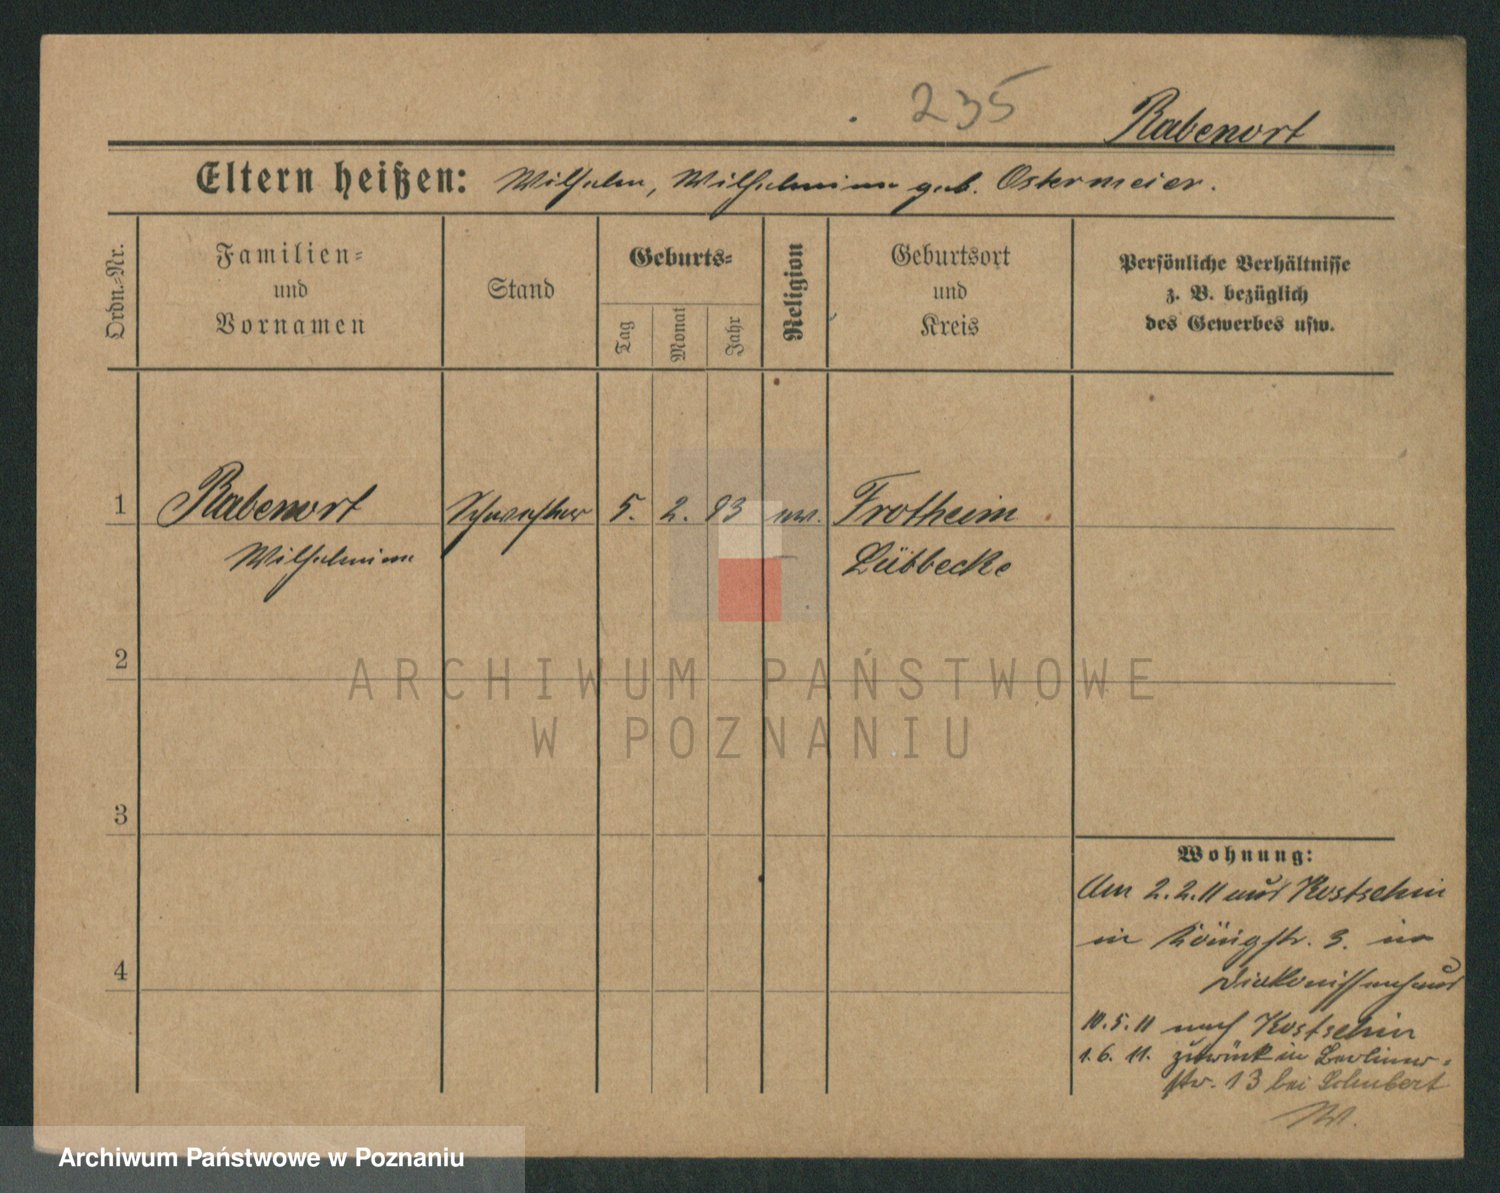 235
Rabenort
Eltern heißen: Wilhelm, Wilhelmine geb. Ostermeier.
Ordn.-Nr.
Familien-
und
Vornamen
Stand
Geburts-
Tag
Monat
Jahr
Religion
Geburtsort
und
Kreis
Persönliche Verhältnisse
z. B. bezüglich
des Gewerbes usw.
1
Rabenort
Schwester
5. 2. 83
ev.
Frotheim
Wilhelmine
Lübbecke
2
ARCHIWUM PAŃSTWOWE
W POZNANIU
3
Wohnung:
Am 2.2.11 aus Kostschin
in Königstr. 3. im
4
Diakonissenhaus
10.5.11 nach Kostschin
1.6.11. zurück in Berliner-
str. 13 bei Schubert
Archiwum Państwowe w Poznaniu